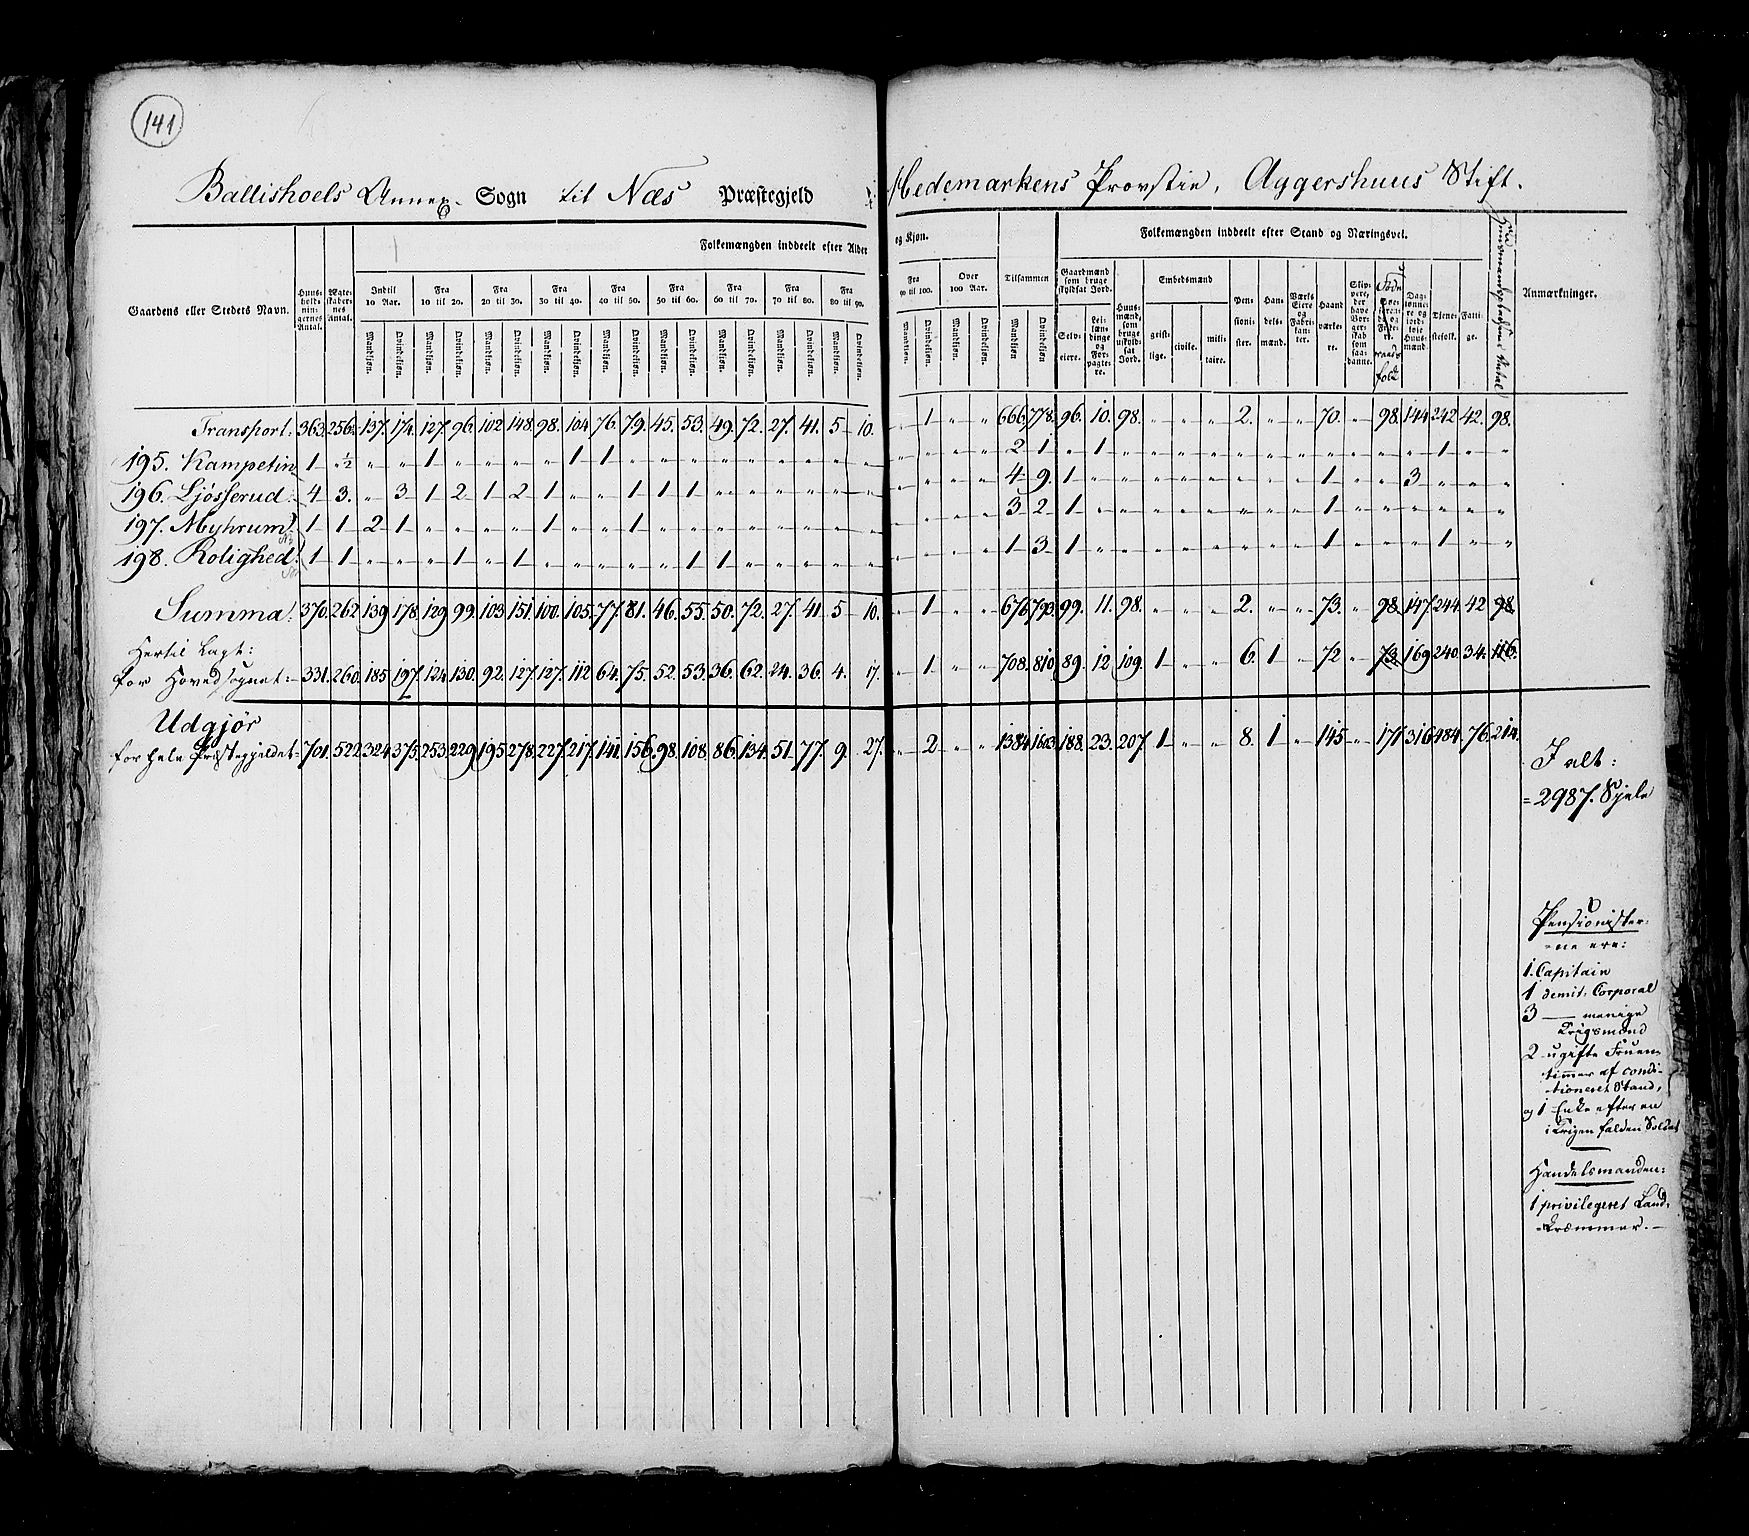 141
Ballishoels Annex- Sogn til Næs Præstegjeld i Hedemarkens Provstie, Aggershuus Stift.
Gaardens eller Stedets Navn. Huusholdningernes Antal. Ægteskabernes Antal. Folkemængden inddeelt efter Alder og Kjøn. Tilsammen Folkemængden inddeelt efter Stand og Næringsvei. Anmærkninger.
Indtil 10 Aar. Fra 10 til 20. Fra 20 til 30. Fra 30 til 40. Fra 40 til 50. Fra 50 til 60. Fra 60 til 70. Fra 70 til 80. Fra 80 til 90. Fra 90 til 100. Over 100 Aar.
Mandkjøn. Qvindekjøn. Mandkjøn. Qvindekjøn. Mandkjøn. Qvindekjøn. Mandkjøn. Qvindekjøn. Mandkjøn. Qvindekjøn. Mandkjøn. Qvindekjøn. Mandkjøn. Qvindekjøn. Mandkjøn. Qvindekjøn. Mandkjøn. Qvindekjøn. Mandkjøn. Qvindekjøn. Mandkjøn. Qvindekjøn. Mandkjøn Qvindekjøn
Gaardmænd som bruge skyldsat Jord. Selveiere. Leilændinge og Forpagtere. Huusmænd, som bruge uskyldsat Jord. Embedsmænd geistlige. civile. militaire. Pensionister. Handelsmænd. Værks Eiere og Fabrikanter. Haandværkere. Daglønnere og jordløse Huusmænd. Tjenestefolk. Fattige.
Transport: 363. 256½ 137. 174. 127. 96. 102 148. 98. 104. 76. 79. 45. 53. 49. 72. 27. 41. 5 10. „ 1 „ „ 666. 778. 96. 10. 98. „ „ „ 2. „ „ 70. „ 98. 144 242 42. 98.
195. Kampetin 1 „½ „ „ 1 „ „ „ „ 1 1 „ „ „ „ „ „ „ „ „ „ „ „ „ 2 1 „ 1 „ „ „ „ „ „ „ „ „ „ „ 1 „ „
196. Ljøsserud. 4 3. „ 3 1 2 1 2 1 „ „ 1 1 1 „ „ „ „ „ „ „ „ „ „ 4 9. 1 „ „ „ „ „ „ „ „ 1 „ „ 3 „ „ „
197. Myhrum 1 1 2 1 „ „ „ „ 1 „ „ 1 „ „ „ „ „ „ „ „ „ „ „ „ 3 2 1 „ „ „ „ „ „ „ „ 1 „ „ „ „ „ „
198. Rolighed 1 1 „ „ „ 1 „ 1 „ „ „ „ „ 1 1 „ „ „ „ „ „ „ „ „ 1 3 1 „ „ „ „ „ „ „ „ 1 „ „ „ 1 „ „
Summa: 370. 262 139 178. 129 99. 103 151. 100. 105. 77. 81. 46. 55. 50. 72. 27. 41 5 10. „ 1 „ „ 676 793. 99. 11. 98. „ „ „ 2. „ „ 73. „ 98. 147 244. 42 98.
Hertil Lagt:
for Hovedsognet: 331. 260. 185 197. 124 130. 92. 127 127. 112 64. 75. 52. 53. 36. 62. 24. 36. 4. 17. „ 1 „ „ 708. 810 89. 12 109. 1 „ „ 6. 1 „ 72 „ 73. 169 240. 34. 116.
Udgjør
for hele Præstegjeldet 701. 522 324. 375. 253. 229 195 278. 227. 217. 141. 156. 98. 108. 86. 134. 51. 77. 9. 27. „ 2 „ „ 1384 1603 188. 23. 207 1 „ „ 8. 1 „ 145 „ 171 316 484. 76. 214.
I alt:
= 2987. Sjele
Pensionister-
-ne ere:
1. Capitain
1 demit. Corporal
3 — menige
Krigsmænd
2 ugifte Fruen-
timmer af condi-
tioneret Stand,
og 1 Enke efter en
i Krigen falden Soldat
Handelsmanden:
1 privilegeret Land-
-kræmmer.—